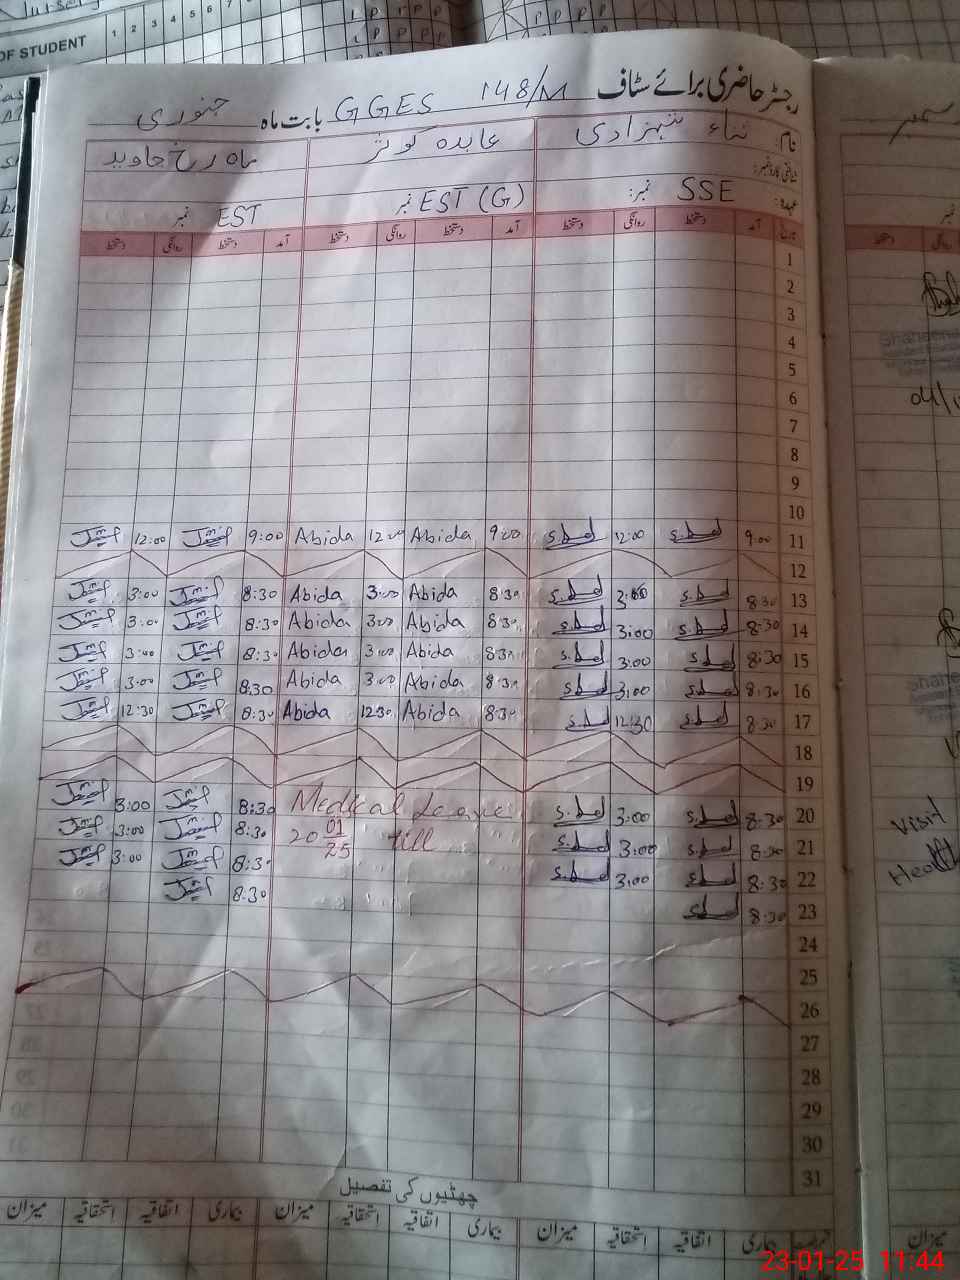 OF STUDENT 1 2 3 4 5 6 7
رجسٹر حاضری برائے سٹاف GGES 148/M بابت ماہ جنوری
نام: ثناء شہزادی عابدہ کوثر ماہ رخ جاوید
شناختی کارڈ نمبر:
عہدہ: SSE نمبر: EST (G) نمبر EST نمبر
تاریخ آمد دستخط روانگی دستخط آمد دستخط روانگی دستخط آمد دستخط روانگی دستخط
1
2
3
4
5
6
7
8
9
10
11 9:00 12:00 9:00 Abida 12:00 Abida 9:00 12:00
12
13 8:30 3:00 8:30 Abida 3:00 Abida 8:30 3:00
14 8:30 3:00 8:30 Abida 3:00 Abida 8:30 3:00
15 8:30 3:00 8:30 Abida 3:00 Abida 8:30 3:00
16 8:30 3:00 8:30 Abida 3:00 Abida 8:30 3:00
17 8:30 12:30 8:30 Abida 12:30 Abida 8:30 12:30
18
19
20 8:30 3:00 Medical Leave 8:30 3:00
21 8:30 3:00 20 01/25 till 8:30 3:00
22 8:30 3:00 8:30 3:00
23 8:30 8:30
24
25
26
27
28
29
30
31
چھٹیوں کی تفصیل
بیماری اتفاقیہ استحقاقیہ میزان بیماری اتفاقیہ استحقاقیہ میزان بیماری اتفاقیہ استحقاقیہ میزان
دستخط
Visit
میزان
23-01-25 11:44